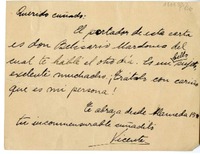 Querido cuñado:
El portador de esta carta
es don Belisario Mardones del
cual te hablé el otro día. Es un
excelente muchacho. Trátalo con cariño
que es mi persona!
Te abraza desde Alameda 13
tu inconmensurable cuñado
Vicente